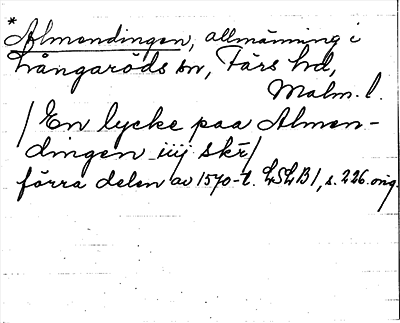 * Almendingen, allmänning i
Långaröds sn, Färs hd,
Malm. l.
/ En lycke paa Almen-
dingen iiij skr /
förra delen av 1570-t. LSLB1, s. 226. orig.